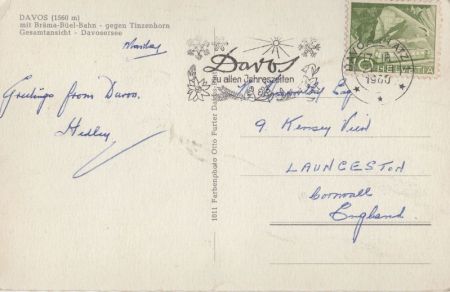 DAVOS (1560 m)
mit Bräma-Büel-Bahn - gegen Tinzenhorn
Gesamtansicht - Davosersee
Monday
Greetings from Davos.
Hedley
1011 Farbenphoto Otto Furter Davos
Davos
zu allen Jahreszeiten
DAVOS PLATZ
1960
HELVETIA
Esq
9 Kensey View
LAUNCESTON
Cornwall
England